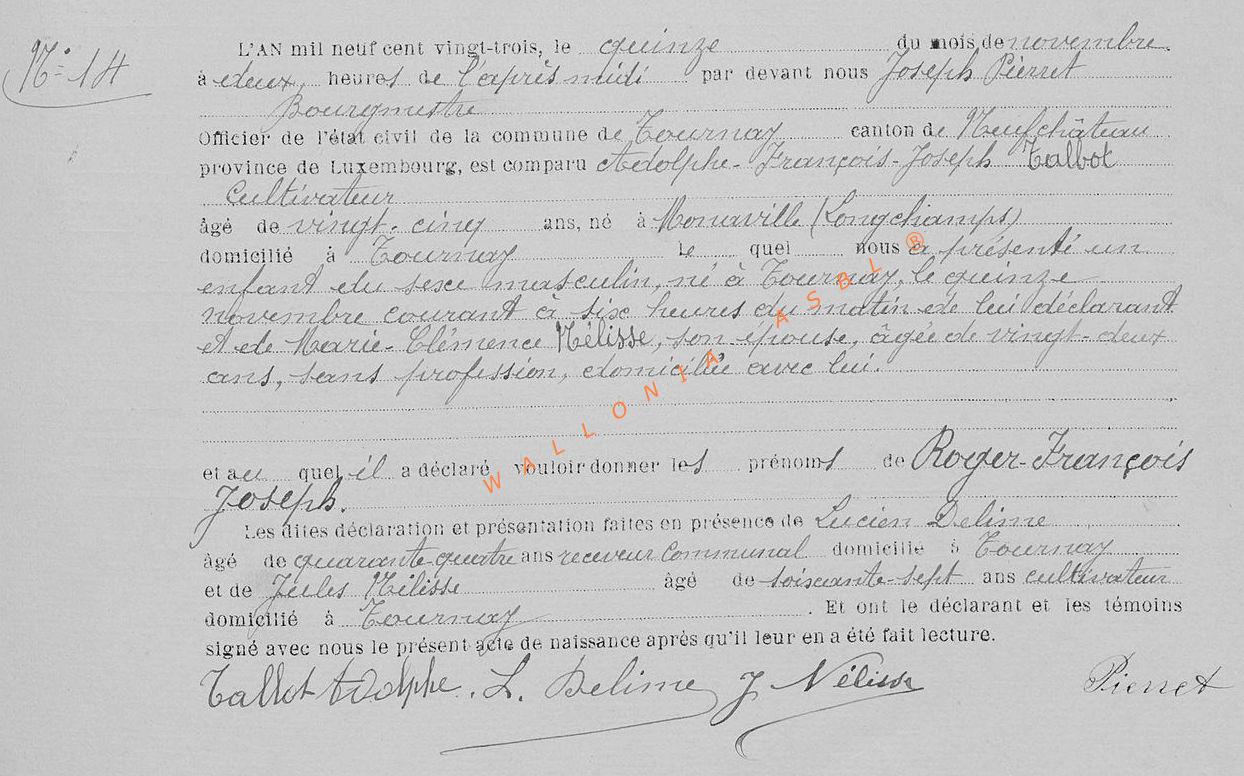 N° 14
L'AN mil neuf cent vingt-trois, le quinze du mois de novembre.
à deux, heures de l'après midi par devant nous Joseph Pierret
Bourgmestre
Officier de l'état civil de la commune de Tournay canton de Neufchâteau
province de Luxembourg, est comparu Adolphe-François-Joseph Talbot
Cultivateur
âgé de vingt-cinq ans, né à Monaville (Longchamps)
domicilié à Tournay le quel nous a présenté un
enfant du sexe masculin, né à Tournay, le quinze
novembre courant à six heures du matin de lui déclarant
et de Marie-Clémence Nélisse, son épouse, âgée de vingt-deux
ans, sans profession, domiciliée avec lui.
et au quel il a déclaré vouloir donner les prénoms de Roger-François
Joseph.
Les dites déclaration et présentation faites en présence de Lucien Delime
âgé de quarante-quatre ans receveur communal domicilié à Tournay
et de Jules Nélisse âgé de soixante-sept ans cultivateur
domicilié à Tournay. Et ont le déclarant et les témoins
signé avec nous le présent acte de naissance après qu'il leur en a été fait lecture.
Talbot Adolphe. L. Delime J Nélisse Pierret
WALLONIA ASBL ®